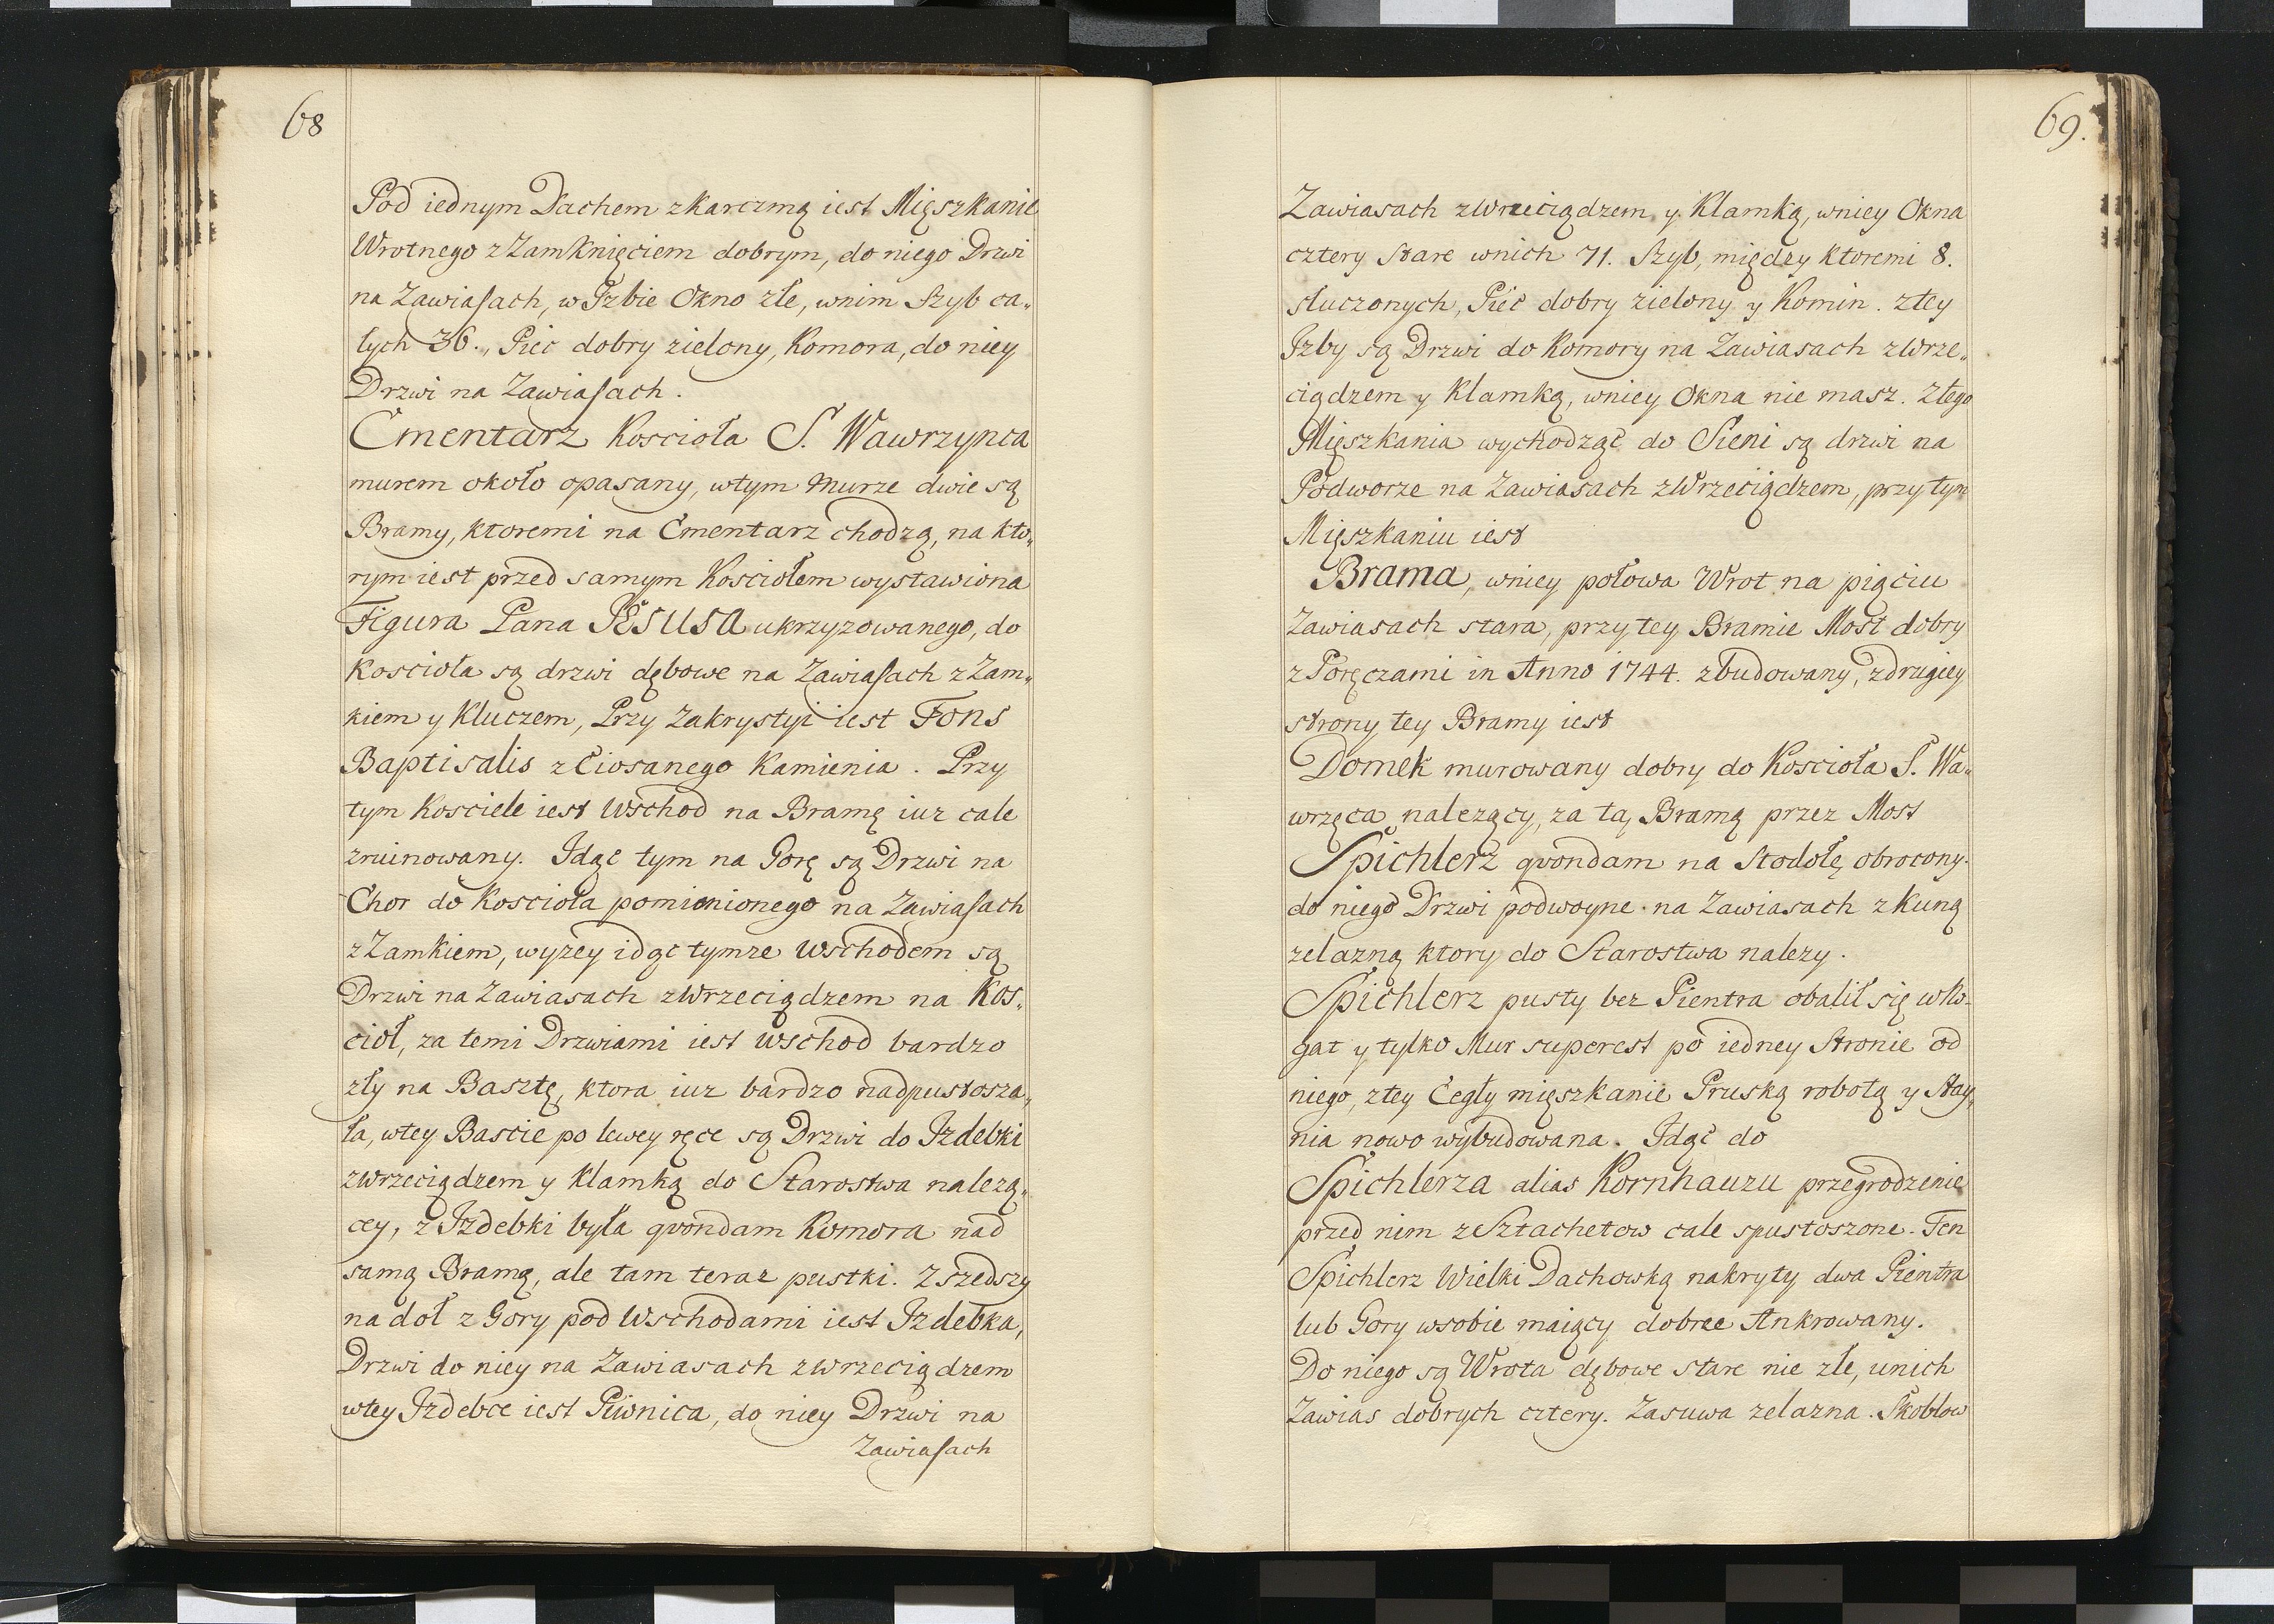 68
Pod iednym Dachem z karczmą iest Mięszkanie
Wrotnego z Zamknięciem dobrym, do niego Drzwi
na Zawiasach, w Izbie Okno złe, wnim Szyb ca„
łych 36., Piec dobry zielony, Komora, do niey
Drzwi na Zawiasach.
Cmentarz Koscioła S. Wawrzynca
murem około opasany, wtym Murze dwie są
Bramy, ktoremi na Cmentarz chodzą, na kto„
rym iest przed samym Kosciołem wystawiona
Figura Pana JESUSA ukrzyzowanego, do
Koscioła są drzwi dębowe na Zawiasach z Zam„
kiem y Kluczem, Przy Zakrystyi iest Fons
Baptisalis z Ciosanego Kamienia. Przy
tym Kosciele iest Wschod na Bramę iuz cale
zruinowany. Idąc tym na Gorę są Drzwi na
Chor do Koscioła pomienionego na Zawiasach
z Zamkiem, wyzey idąc tymze Wschodem są
Drzwi na Zawiasach z Wrzeciądzem na Kos„
cioł, za temi Drzwiami iest wschod bardzo
zły na Basztę, ktora iuz bardzo nadpustosza„
ła, wtey Bascie po lewey ręce są Drzwi do Izdebki
z wrzeciądzem y Klamką do Starostwa nalezą„
cey, z Izdebki była qvondam Komora nad
samą Bramą, ale tam teraz pustki. Zszedszy
na doł z Gory pod Wschodami iest Izdebka,
Drzwi do niey na Zawiasach z wrzeciądzem
wtey Izdebce iest Piwnica, do niey Drzwi na
Zawiasach
69.
Zawiasach z Wrzeciądzem y Klamką, wniey Okna
cztery stare wnich 71. Szyb, między ktoremi 8.
słuczonych, Piec dobry zielony y Komin. z tey
Izby są Drzwi do Komory na Zawiasach z Wrze„
ciądzem y Klamką, wniey Okna nie masz. Z tego
Mięszkania wychodząc do Sieni są drzwi na
Podworze na Zawiasach z Wrzeciądzem, przy tym
Mięszkaniu iest
Brama, wniey połowa Wrot na piąciu
Zawiasach stara, przy tey Bramie Most dobry
z Poręczami in Anno 1744. zbudowany, z drugiey
strony tey Bramy iest
Domek murowany dobry do Koscioła S. Wa„
wrzęca nalezący, za tą Bramą przez Most
Spichlerz qvondam na Stodołę obrocony.
do niego Drzwi podwoyne na Zawiasach z kuną
zelazną ktory do Starostwa nalezy.
Spichlerz pusty bez Pientra obalił się w No-
gat y tylko Mur superest po iedney Stronie od
niego, z tey Cegły mięszkanie Pruską robotą y Stay„
nia nowo wybudowana. Idąc do
Spichlerza alias Kornhauzu przegrodzenie
przed nim z Sztachetow cale spustoszone. Ten
Spichlerz Wielki Dachowką nakryty dwa Pientra
lub Gory wsobie maiący dobrze Ankrowany.
Do niego są Wrota dębowe stare nie złe, unich
Zawias dobrych cztery. Zasuwa zelazna. Skoblow